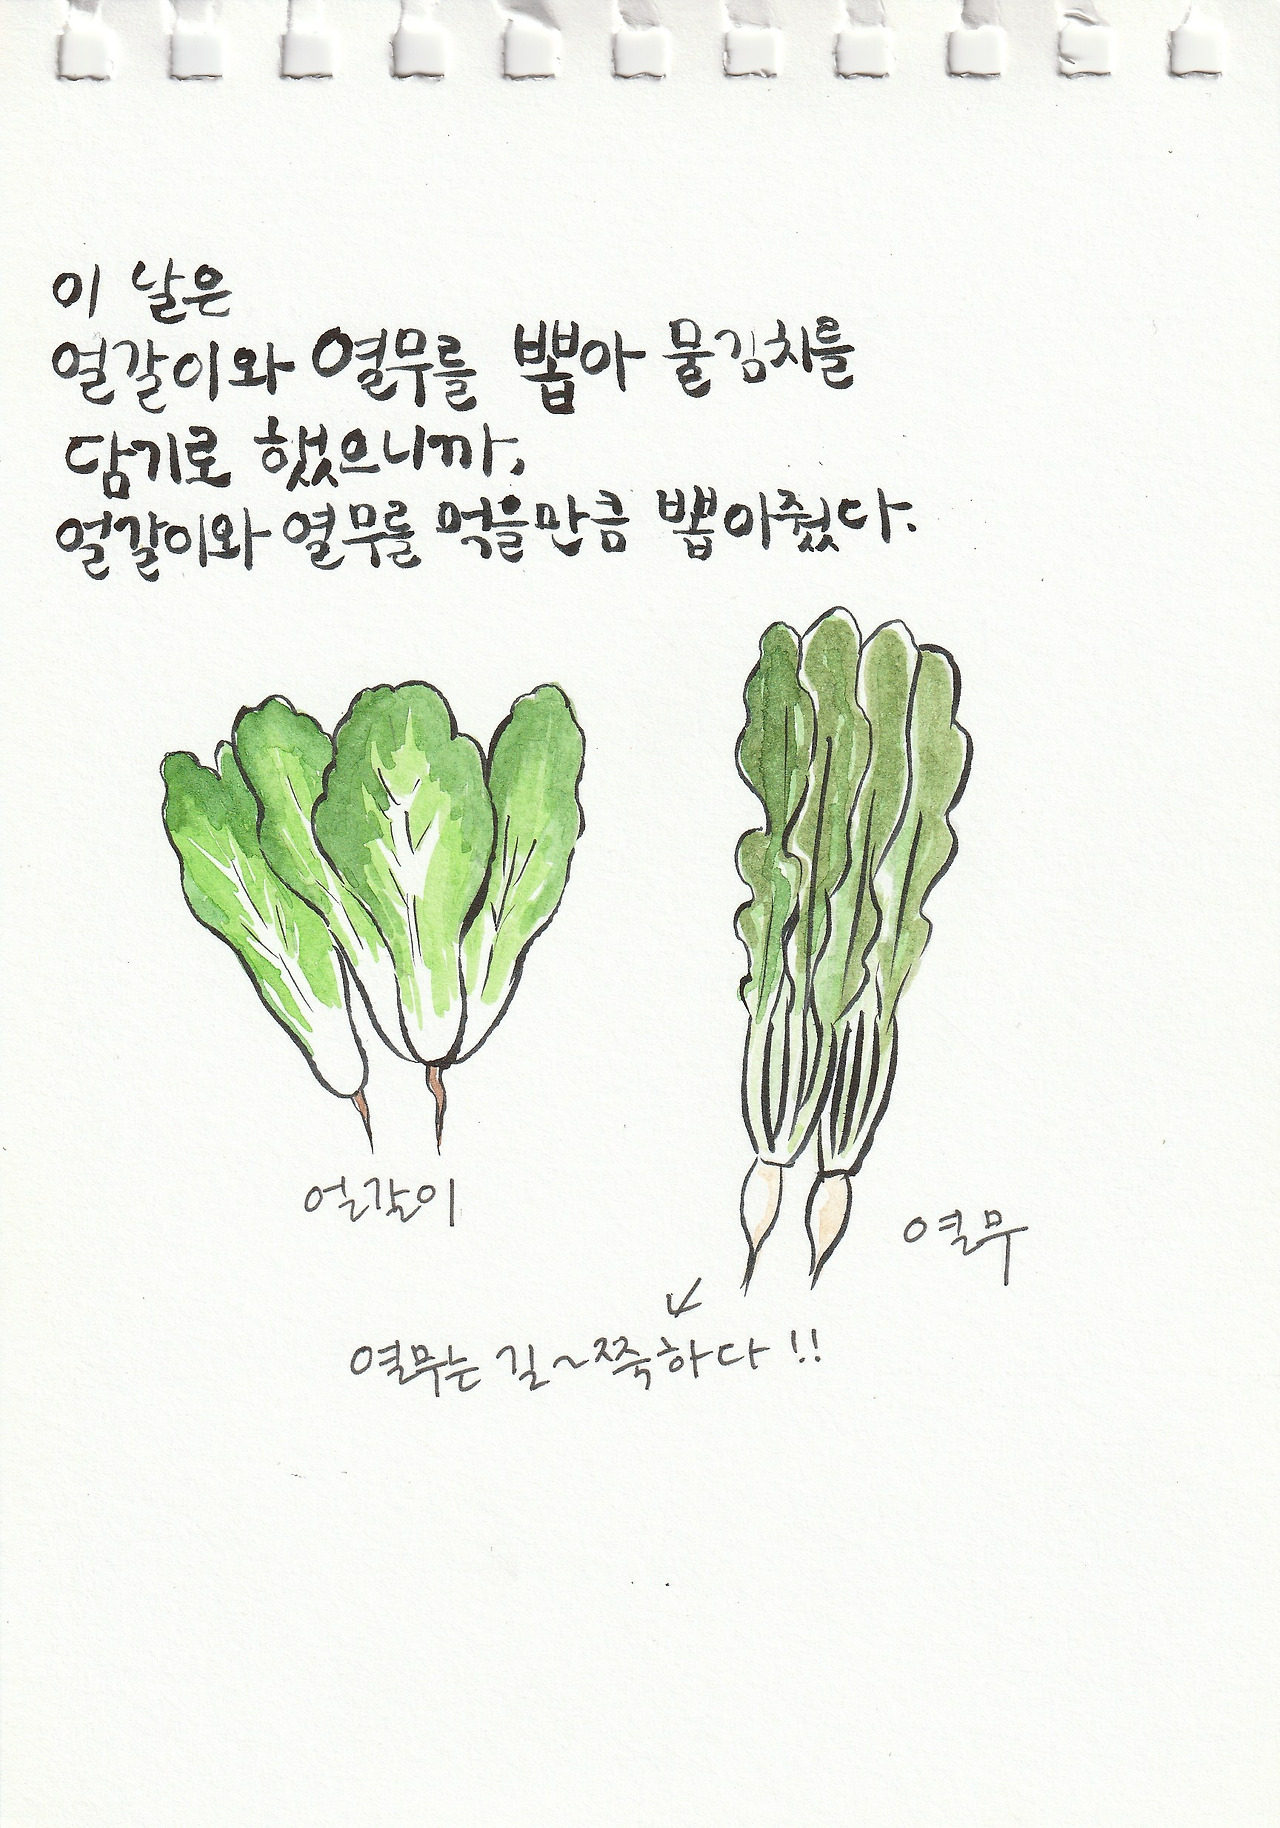 이 날은
얼갈이와 열무를 뽑아 물김치를
담기로 했으니까,
얼갈이와 열무를 먹을만큼 뽑아줬다.
얼갈이
열무
열무는 길~쭉하다!!